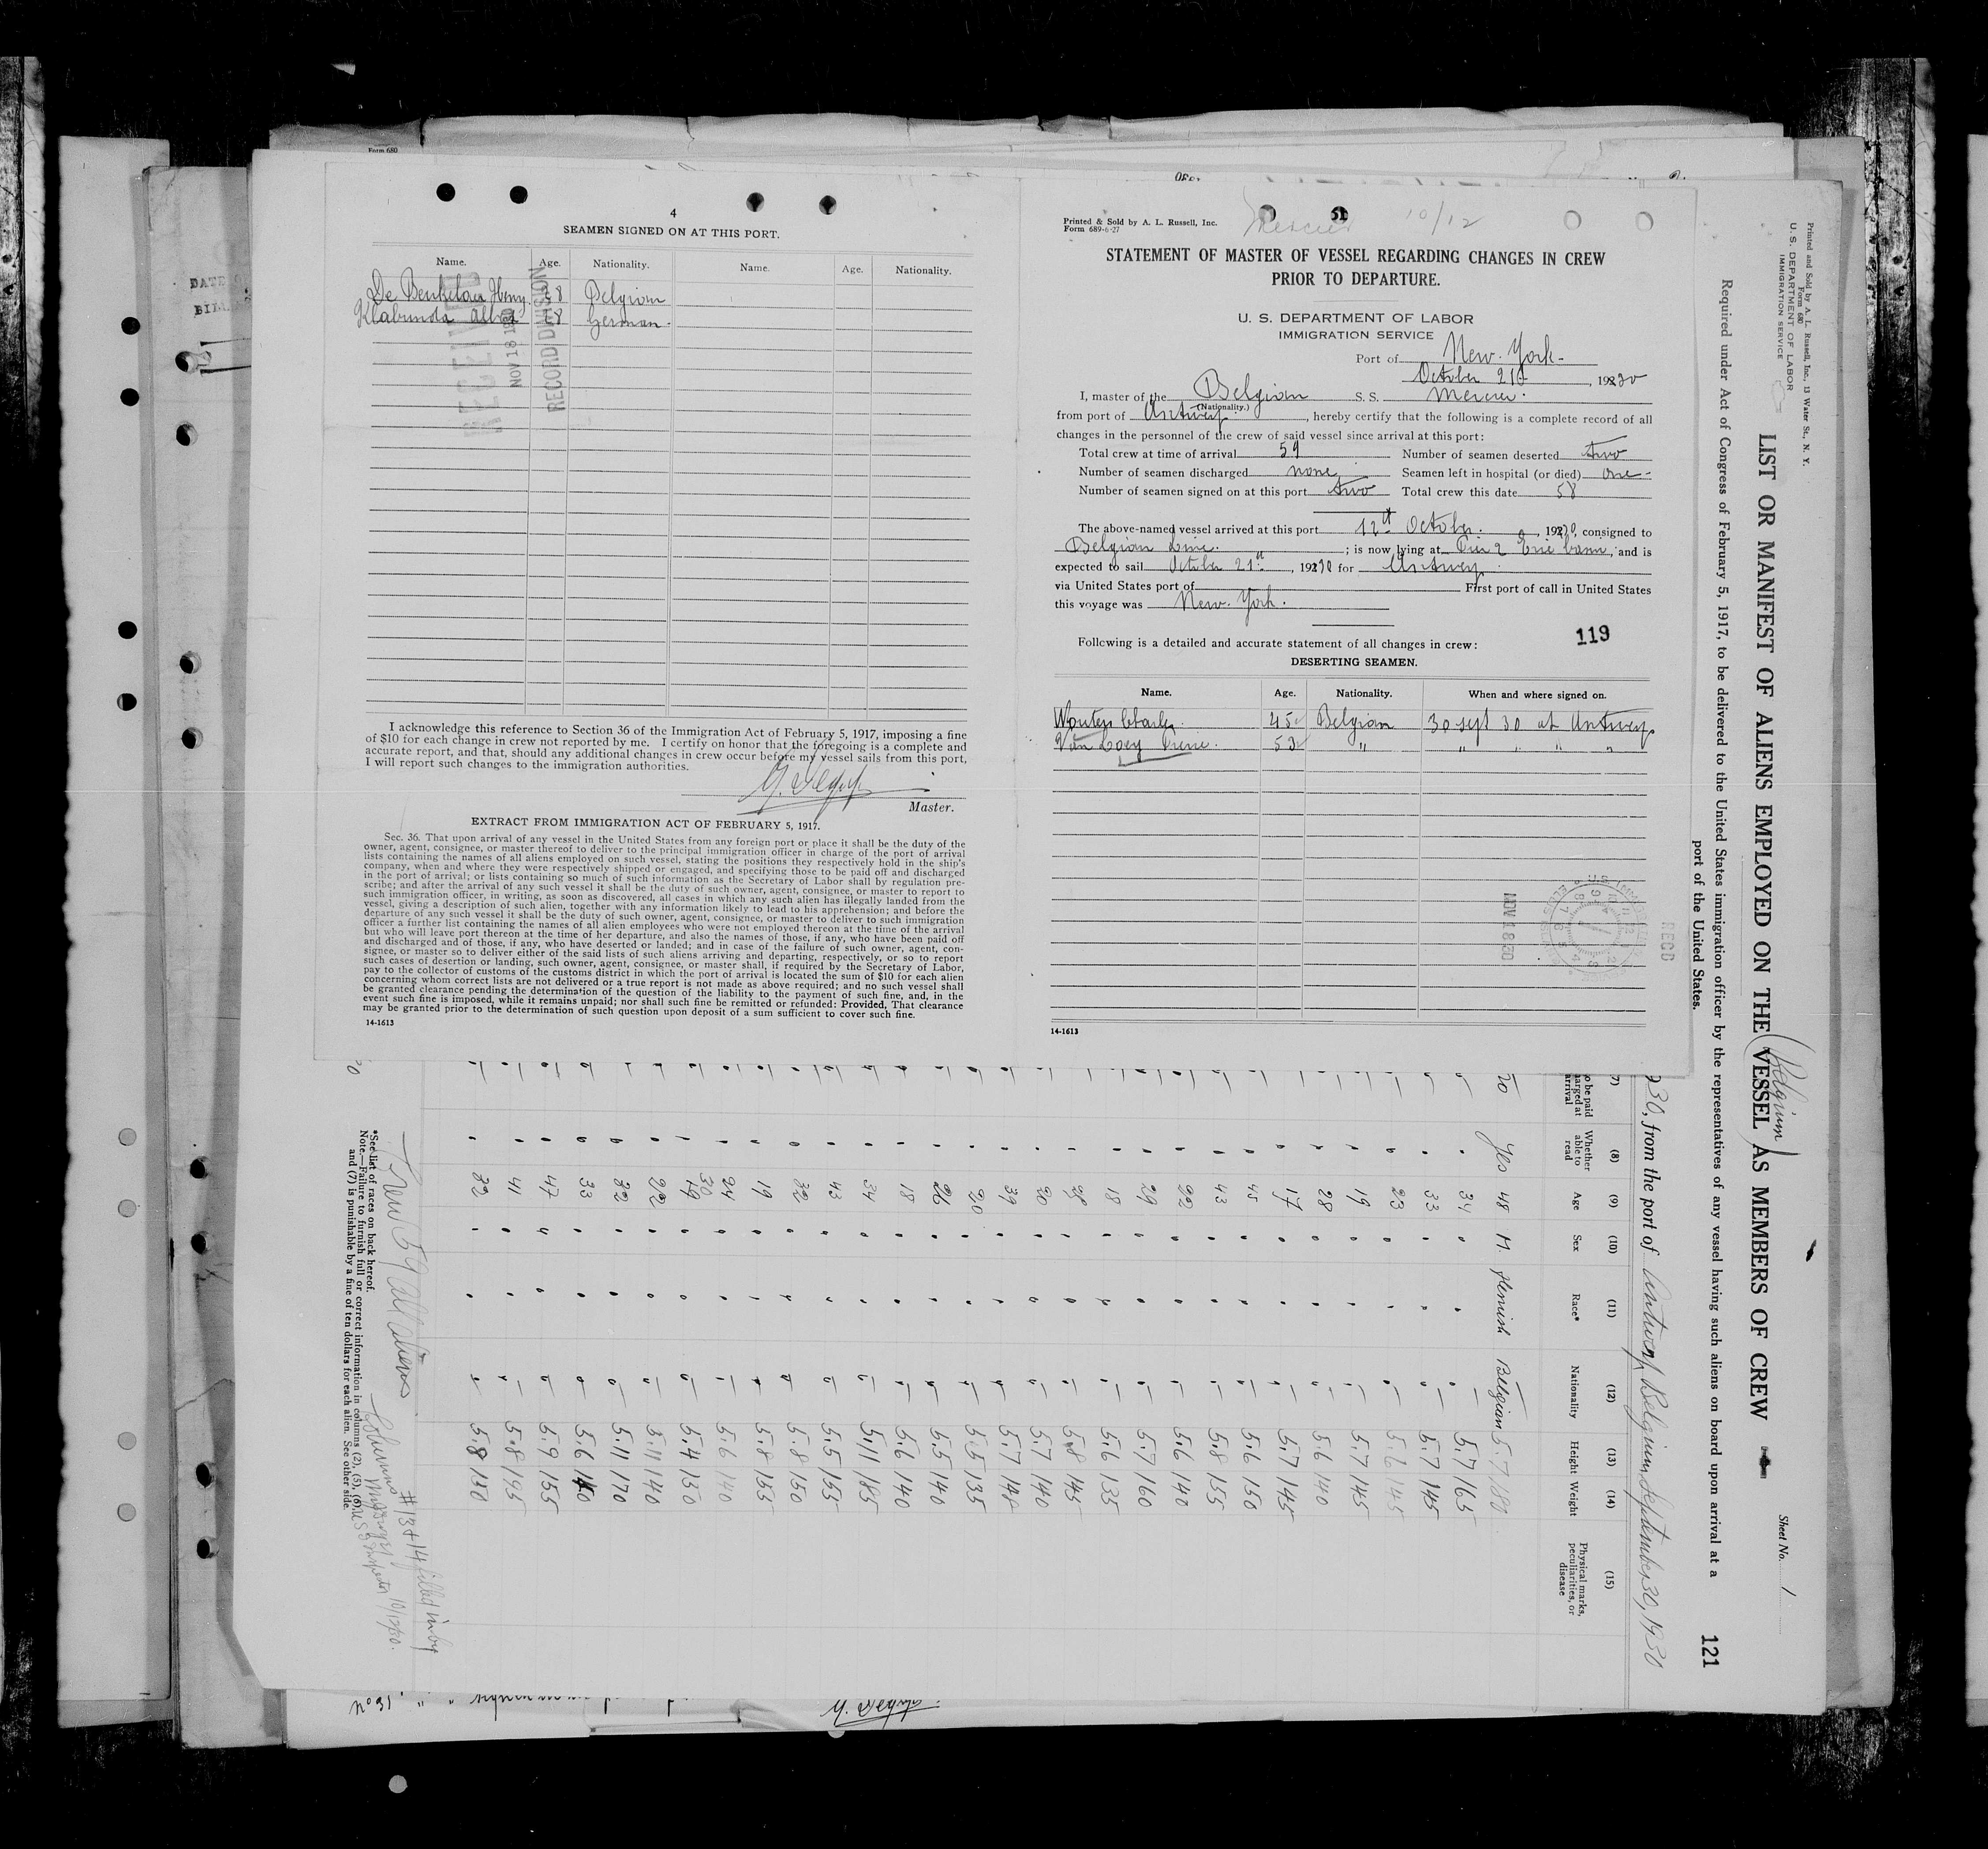 Form 680
4
SEAMEN SIGNED ON AT THIS PORT.
Name. Age. Nationality. Name. Age. Nationality.
De Benkelaer Henry 38 Belgian
Klabunda 28 German.
RECEIVED
NOV 18 1930
RECORD DIVISION
I acknowledge this reference to Section 36 of the Immigration Act of February 5, 1917, imposing a fine
of $10 for each change in crew not reported by me. I certify on honor that the foregoing is a complete and
accurate report, and that, should any additional changes in crew occur before my vessel sails from this port,
I will report such changes to the immigration authorities.
Master.
EXTRACT FROM IMMIGRATION ACT OF FEBRUARY 5, 1917.
Sec. 36. That upon arrival of any vessel in the United States from any foreign port or place it shall be the duty of the
owner, agent, consignee, or master thereof to deliver to the principal immigration officer in charge of the port of arrival
lists containing the names of all aliens employed on such vessel, stating the positions they respectively hold in the ship's
company, when and where they were respectively shipped or engaged, and specifying those to be paid off and discharged
in the port of arrival; or lists containing so much of such information as the Secretary of Labor shall by regulation pre-
scribe; and after the arrival of any such vessel it shall be the duty of such owner, agent, consignee, or master to report to
such immigration officer, in writing, as soon as discovered, all cases in which any such alien has illegally landed from the
vessel, giving a description of such alien, together with any information likely to lead to his apprehension; and before the
departure of any such vessel it shall be the duty of such owner, agent, consignee, or master to deliver to such immigration
officer a further list containing the names of all alien employees who were not employed thereon at the time of the arrival
but who will leave port thereon at the time of her departure, and also the names of those, if any, who have been paid off
and discharged and of those, if any, who have deserted or landed; and in case of the failure of such owner, agent, con-
signee, or master so to deliver either of the said lists of such aliens arriving and departing, respectively, or so to report
such cases of desertion or landing, such owner, agent, consignee, or master shall, if required by the Secretary of Labor,
pay to the collector of customs of the customs district in which the port of arrival is located the sum of $10 for each alien
concerning whom correct lists are not delivered or a true report is not made as above required; and no such vessel shall
be granted clearance pending the determination of the question of the liability to the payment of such fine, and, in the
event such fine is imposed, while it remains unpaid; nor shall such fine be remitted or refunded: Provided, That clearance
may be granted prior to the determination of such question upon deposit of a sum sufficient to cover such fine.
14-1613
Printed & Sold by A. L. Russell, Inc.
Form 689-6-27
Mercier 51 10/12
STATEMENT OF MASTER OF VESSEL REGARDING CHANGES IN CREW
PRIOR TO DEPARTURE.
U. S. DEPARTMENT OF LABOR
IMMIGRATION SERVICE
Port of New-York-
October 21st, 1930
I, master of the Belgian S. S. Mercier.
(Nationality.)
from port of Antwerp, hereby certify that the following is a complete record of all
changes in the personnel of the crew of said vessel since arrival at this port:
Total crew at time of arrival 59 Number of seamen deserted two
Number of seamen discharged none Seamen left in hospital (or died) one-
Number of seamen signed on at this port two Total crew this date 58
The above-named vessel arrived at this port 12th October., 1930, consigned to
Belgian Line.; is now lying at Pier 2 Erie basin, and is
expected to sail October 21st, 1930 for Antwerp.
via United States port of First port of call in United States
this voyage was New-York.
119
Following is a detailed and accurate statement of all changes in crew:
DESERTING SEAMEN.
Name. Age. Nationality. When and where signed on.
Wouters Charles. 45 Belgian 30 sept 30 at Antwerp
Van Loey 52 " " " " "
NOV 18 30
RECD
14-1613
Printed and Sold by A. L. Russell, Inc., 13 Water St., N. Y.
Form 680
U. S. DEPARTMENT OF LABOR
IMMIGRATION SERVICE
LIST OR MANIFEST OF ALIENS EMPLOYED ON THE VESSEL AS MEMBERS OF CREW
(Belgium)
Sheet No. 1
Required under Act of Congress of February 5, 1917, to be delivered to the United States immigration officer by the representatives of any vessel having such aliens on board upon arrival at a
port of the United States.
121
30, from the port of Antwerp, Belgium, September 30, 1930
(7) (8) (9) (10) (11) (12) (13) (14) (15)
Whether able to read Age Sex Race* Nationality Height Weight Physical marks, peculiarities, or disease
no Yes 48 M. flemish Belgian 5.7 180
34 5.7 165
33 5.7 145
23 5.6 145
19 5.7 145
28 5.6 140
17 5.7 145
45 5.6 150
43 5.8 155
22 5.6 140
29 5.7 160
18 5.6 135
28 5.8 145
20 5.7 140
39 5.7 148
20 5.5 135
26 5.5 140
18 5.6 140
34 5.11 185
43 5.5 155
32 5.8 150
19 5.8 155
24 5.6 140
30 19 5.4 130
22 5.11 140
32 5.11 170
33 5.6 140
47 5.9 155
41 5.8 195
32 5.8 150
Crew 59 all aliens
Columns #13 & 14 filled in by
US Inspector 10/12/30.
*See list of races on back hereof.
Note.—Failure to furnish full or correct information in columns (2), (5), (6)
and (7) is punishable by a fine of ten dollars for each alien. See other side.